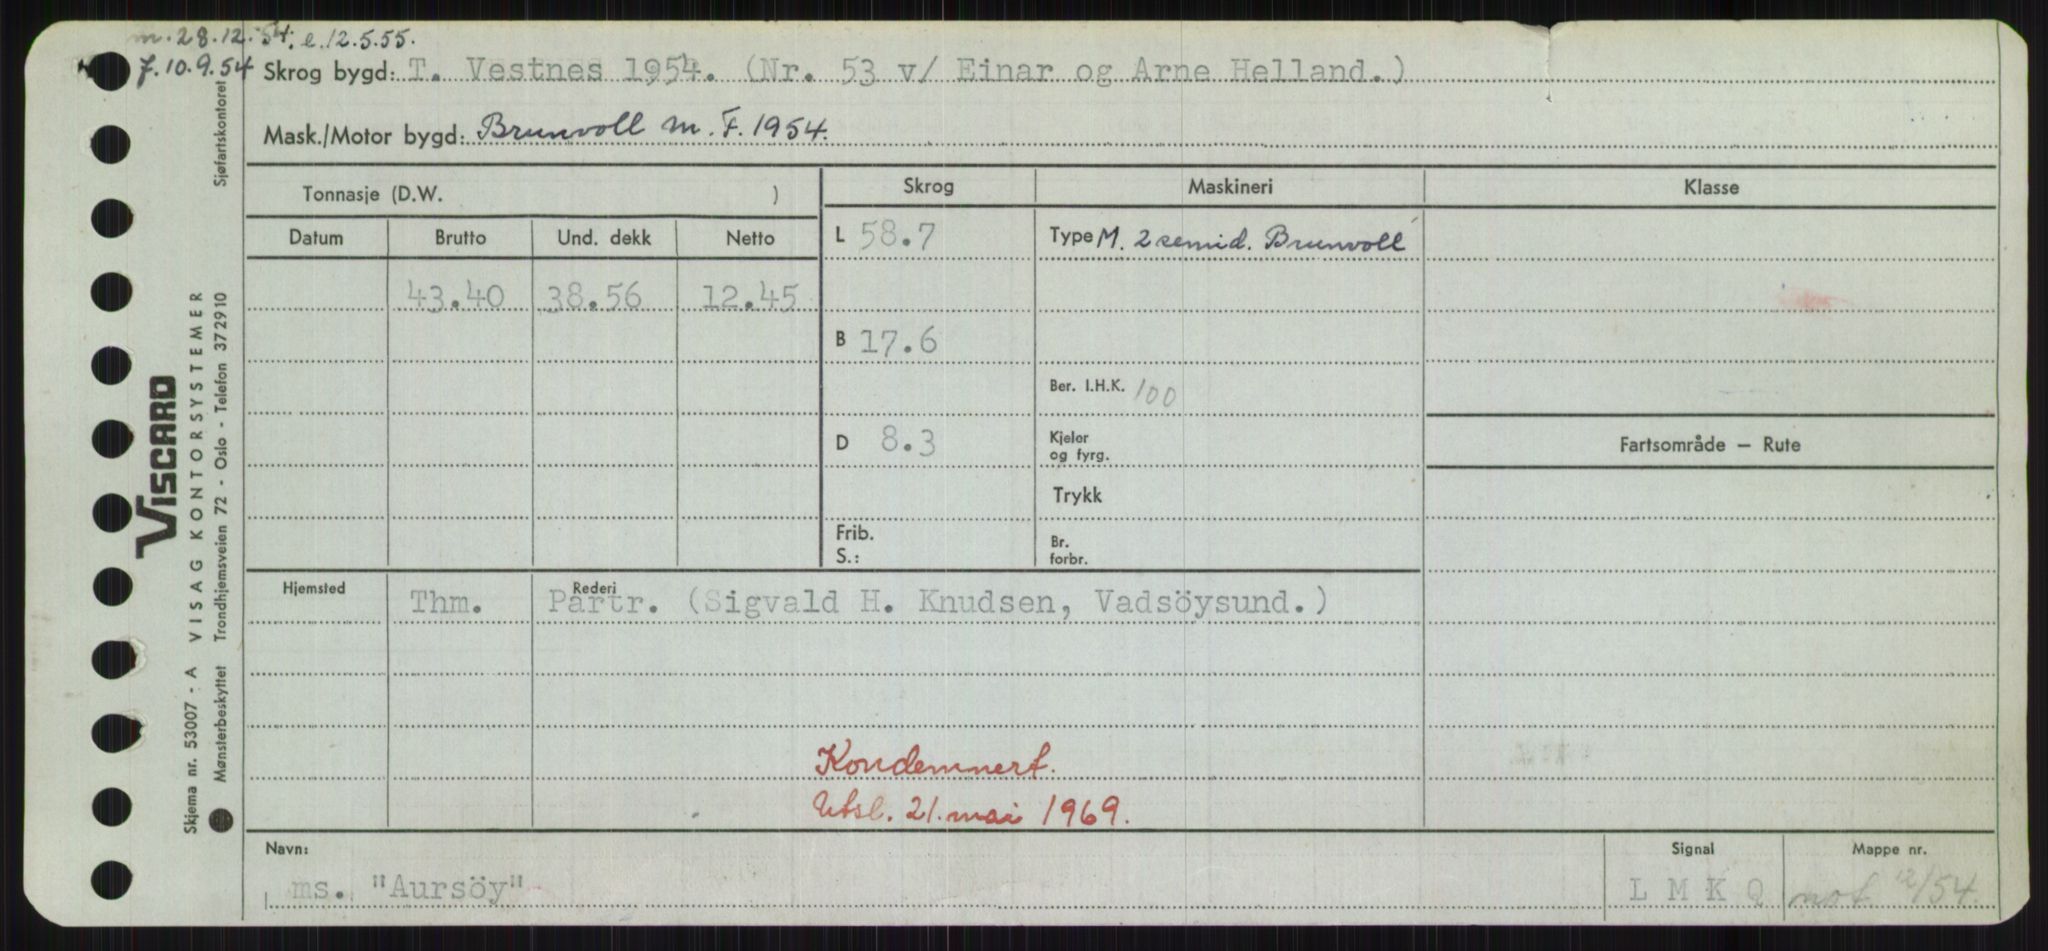 m. 28.12.54. e. 12.5.55.
7.10.9.54 Skrog bygd: T. Vestnes 1954. (Nr. 53 v/ Einar og Arne Helland.)
Mask./Motor bygd: Brunvoll M.F. 1954.
Tonnasje (D.W. ) Skrog Maskineri Klasse
Datum Brutto Und. dekk Netto L 58.7 Type M. 2 semid. Brunvoll
43.40 38.56 12.45
B 17.6
Ber. I.H.K. 100
D 8.3 Kjeler og fyrg. Fartsområde — Rute
Trykk
Frib. S.: Br. forbr.
Hjemsted Rederi
Thm. Partr. (Sigvald H. Knudsen, Vadsöysund.)
Kondemnert.
Utsl. 21. mai 1969.
Navn: Signal Mappe nr.
ms. "Aursöy" L M K Q not 12/54.
Sjøfartskontoret
VISCARD
VISAG KONTORSYSTEMER
Skjema nr. 53007 - A
Mønsterbeskyttet Trondhjemsveien 72 - Oslo - Telefon 372910